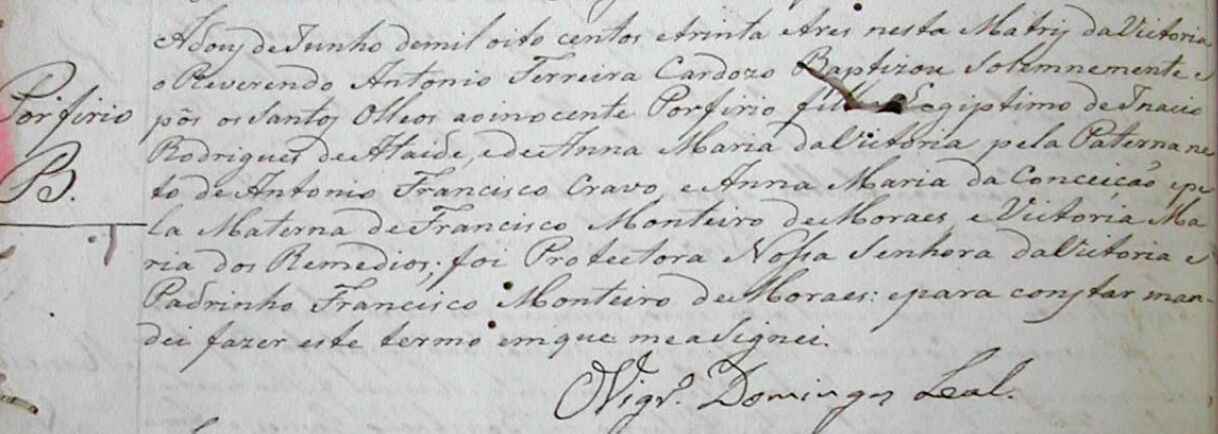 Porfirio
B.
Adouz de Junho de mil oito centos e trinta etres nesta Matriz da Victoria
o Reverendo Antonio Ferreira Cardozo Baptizou Solemnemente e
pôs os Santos Olleos ao inocente Porfirio filho Legiptimo de Inacio
Rodrigues de Ataide, e de Anna Maria da Victoria pela Paterna ne
to de Antonio Francisco Cravo, e Anna Maria da Conceicão epe
la Materna de Francisco Monteiro de Moraes, e Victoria Ma
ria dos Remedios; foi Protectora Nossa Senhora da Victoria e
Padrinho Francisco Monteiro de Moraes: epara constar man-
dei fazer este termo em que me aSignei.
O Vigr.º Domingos Leal.